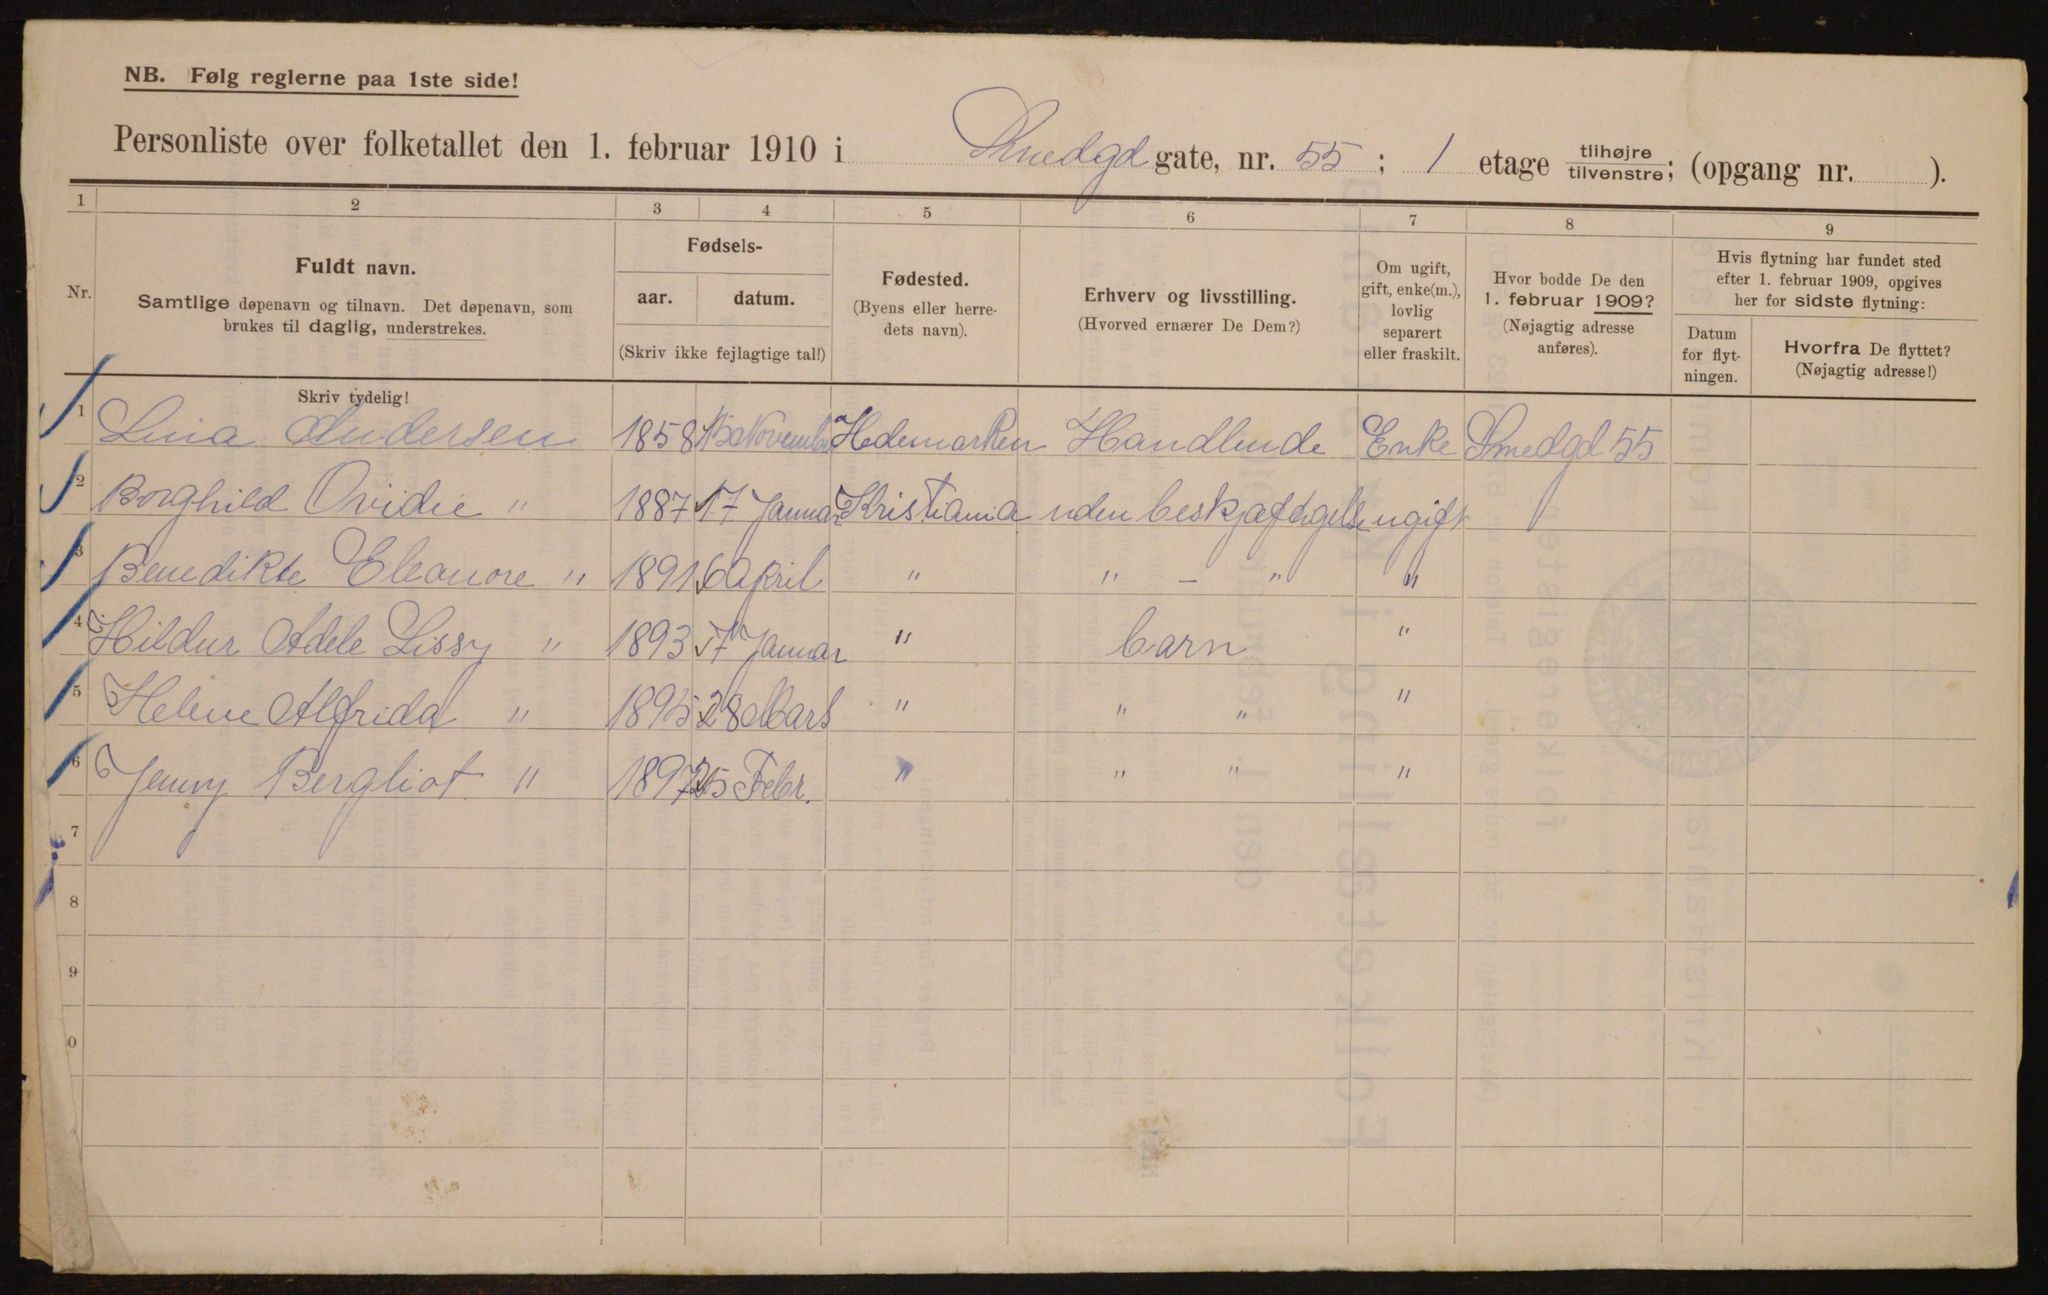 NB. Følg reglerne paa 1ste side!
Personliste over folketallet den 1. februar 1910 i Smedgd gate, nr. 55 ; 1 etage tilhøjre tilvenstre; (opgang nr. ).
1 2 3 4 5 6 7 8 9
Nr.
Fuldt navn.
Samtlige døpenavn og tilnavn. Det døpenavn, som
brukes til daglig, understrekes.
Fødsels-
aar. datum.
(Skriv ikke fejlagtige tal!)
Fødested.
(Byens eller herre-
dets navn).
Erhverv og livsstilling.
(Hvorved ernærer De Dem?)
Om ugift,
gift, enke(m.),
lovlig
separert
eller fraskilt.
Hvor bodde De den
1. februar 1909?
(Nøjagtig adresse
anføres).
Hvis flytning har fundet sted
efter 1. februar 1909, opgives
her for sidste flytning:
Datum
for flyt-
ningen.
Hvorfra De flyttet?
(Nøjagtig adresse!)
Skriv tydelig!
1 Lina Andersen 1858 13 November Hedemarken Handlende Enke Smedgd 55
2 Borghild Ovidie " 1887 17 Januar Kristiania uden beskjæftigelse ugift
3 Benedikte Eleonore " 1891 6 April " " – " "
4 Hildur Adele Lissy " 1893 17 Januar " barn "
5 Helene Alfrida " 1895 28 Mars " " " "
6 Jenny Bergliot " 1897 25 Febr. " " " "
7
8
9
0